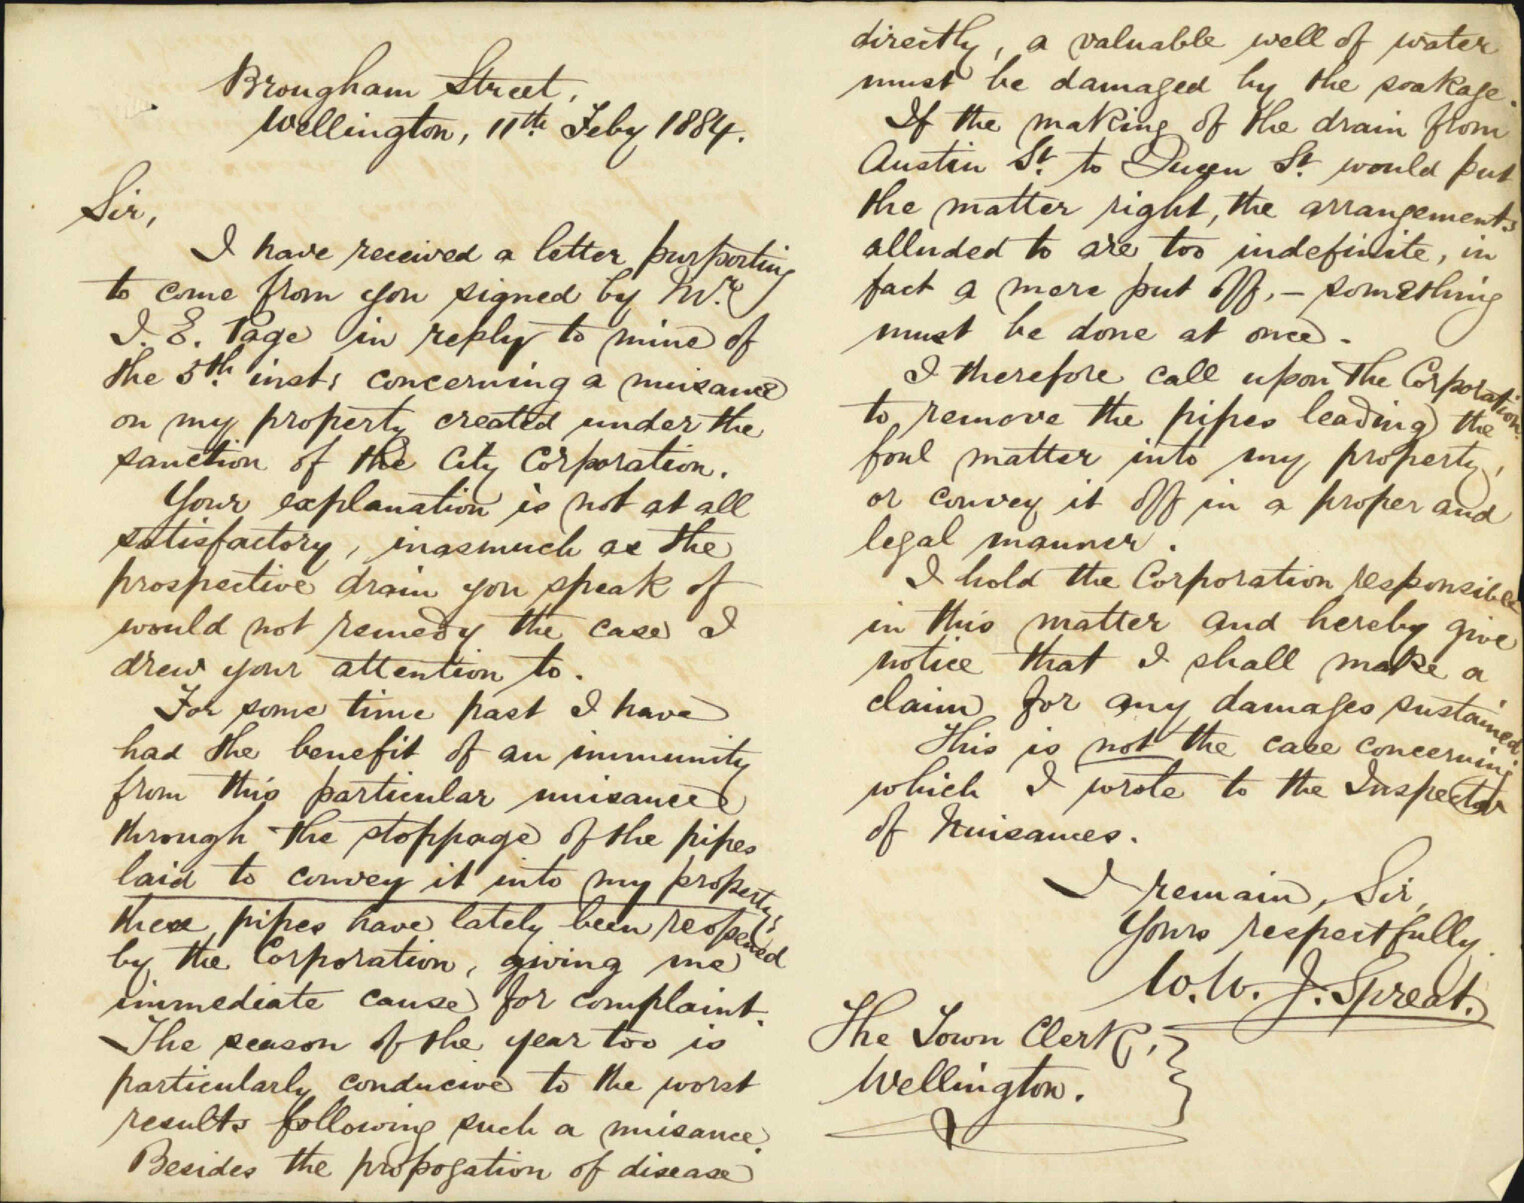 Brougham Street,
Wellington, 11th Feby 1884.
Sir,
I have received a letter purporting
to come from you signed by Mr.
J. E. Page in reply to mine of
the 5th. inst; concerning a nuisance
on my property created under the
sanction of the City Corporation.
Your explanation is not at all
satisfactory, inasmuch as the
prospective drain you speak of
would not remedy the case I
drew your attention to.
For some time past I have
had the benefit of an immunity
from this particular nuisance
through the stoppage of the pipes
laid to convey it into my property;
these pipes have lately been reopened
by the Corporation, giving me
immediate cause for complaint.
The season of the year too is
particularly conducive to the worst
results following such a nuisance.
Besides the propogation of disease
directly, a valuable well of water
must be damaged by the soakage.
If the making of the drain from
Austin St. to Queen St. would put
the matter right, the arrangements
alluded to are too indefinite, in
fact a mere put off, – something
must be done at once.
I therefore call upon the Corporation
to remove the pipes leading the
foul matter into my property,
or convey it off in a proper and
legal manner.
I hold the Corporation responsible
in this matter and hereby give
notice that I shall make a
claim for any damages sustained.
This is not the case concerning
which I wrote to the Inspector
of Nuisances.
I remain, Sir,
Yours respectfully
W. W. J. Spreat.
The Town Clerk,
Wellington.